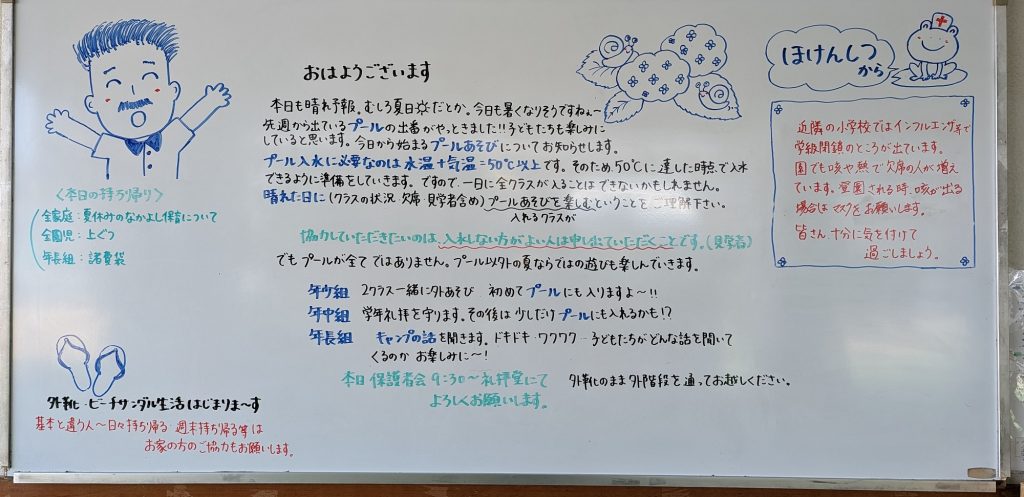 おはようございます
本日も晴れ予報。むしろ夏日☼だとか。今日も暑くなりそうですねぇ〜
先週から出ているプールの出番がやっときました!!子どもたちも楽しみに
していると思います。今日から始まるプールあそびについてお知らせします。
プール入水に必要なのは水温+気温=50℃以上です。そのため、50℃に達した時点で入水
できるように準備をしていきます。ですので、一日に全クラスが入ることはできないかもしれません。
晴れた日に(クラスの状況 欠席・見学者含め)プールあそびを楽しむということをご理解下さい。
入れるクラスが
協力していただきたいのは、入水しない方がよい人は申し出ていただくことです。(見学者)
でもプールが全てではありません。プール以外の夏ならではの遊びも楽しんでいきます。
年少組 2クラス一緒に外あそび 初めてプールにも入りますよ〜!!
年中組 学年礼拝を守ります。その後は少しだけプールにも入れるかも!?
年長組 キャンプの話を聞きます。ドキドキ・ワクワク…子どもたちがどんな話を聞いて
くるのか お楽しみに〜!
本日 保護者会 9:30〜礼拝堂にて 外靴のまま外階段を通ってお越しください。
よろしくお願いします。
〈本日の持ち帰り〉
全家庭:夏休みのなかよし保育について
全園児:上ぐつ
年長組:諸費袋
外靴・ビーチサンダル生活はじまりま〜す
基本と違う人〜日々持ち帰る・週末持ち帰る等は
お家の方のご協力もお願いします。
ほけんしつ
から
近隣の小学校ではインフルエンザ等で
学級閉鎖のところが出ています。
園でも咳や熱で欠席の人が増え
ています。登園される時、咳が出る
場合はマスクをお願いします。
皆さん、十分に気を付けて
過ごしましょう。